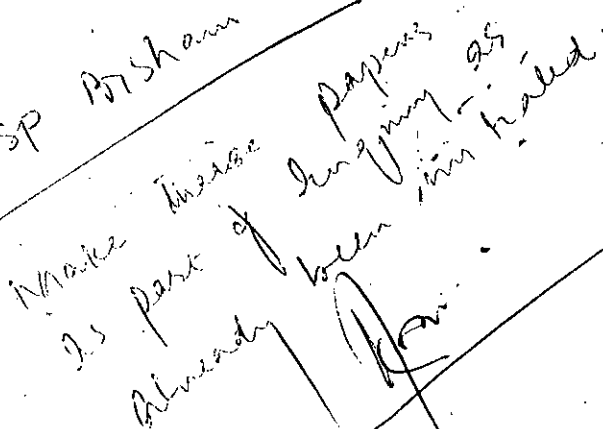 SP Bisham
Make these papers
as part of enquiry as
already been initiated.